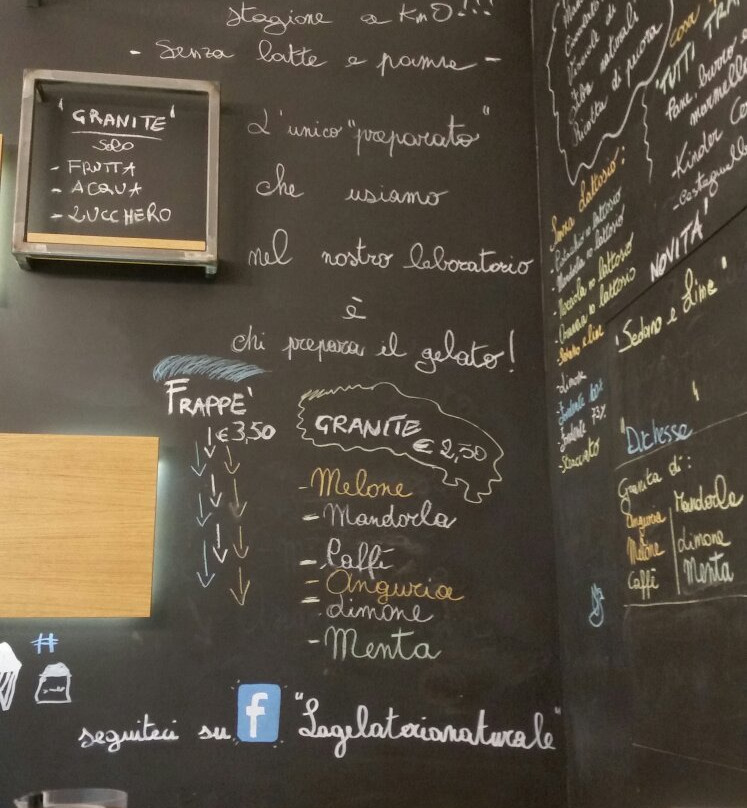 stagione a Km0!!!
- Senza latte e panna -
"GRANITE"
solo
- FRUTTA
- ACQUA
- ZUCCHERO
L'unico "preparato"
che usiamo
nel nostro laboratorio
è
chi prepara il gelato!
FRAPPE'
€ 3,50
GRANITE
€ 2,50
- Melone
- Mandorla
- Caffè
- Anguria
- Limone
- Menta
#
seguiteci su f "Lagelaterianaturale"
Ricotta di pecora
cosa
"TUTTI
Pane, burro e
marmellata
- Kinder
- Castagnelle
Senza lattosio:
- Mandorla no lattosio
- Nocciola no lattosio
- Limone
- Fondente 100%
- Fondente 73%
NOVITA'
"Sedano e Lime"
"Duchesse"
Granita di:
Anguria Mandorla
Melone Limone
Caffè Menta